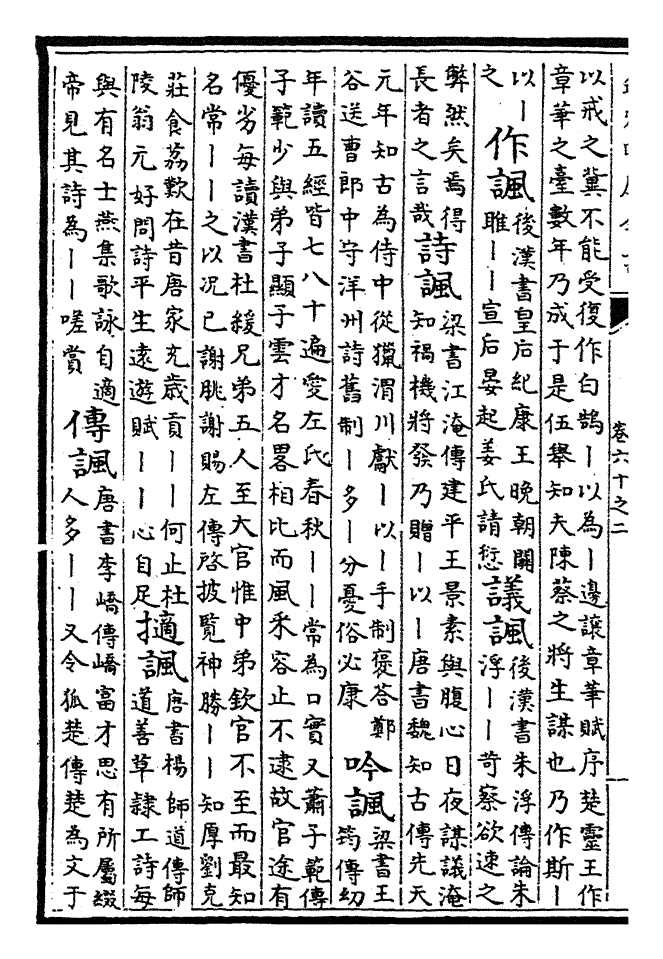 卷六十之二
以戒之冀不能受復作白鵠丨以為丨邊讓章華賦序楚靈王作
章華之臺數年乃成于是伍舉知夫陳蔡之將生謀也乃作斯丨
以丨
之
作諷
後漢書皇后紀康王晚朝關
雎丨丨宣后晏起姜氏請愆
議諷
後漢書朱浮傳論朱
浮丨丨苛察欲速之
弊然矣焉得
長者之言哉
詩諷
梁書江淹傳建平王景素與腹心日夜謀議淹
知禍機將發乃贈丨以丨唐書魏知古傳先天
元年知古為侍中從獵渭川獻丨以丨手制褒答鄭
谷送曹郎中守洋州詩舊制丨多丨分憂俗必康
吟諷
梁書王
筠傳幼
年讀五經皆七八十遍愛左氏春秋丨丨常為口實又蕭子範傳
子範少與弟子顯子雲才名畧相比而風采容止不逮故官途有
優劣每讀漢書杜緩兄弟五人至大官惟中弟欽官不至而最知
名常丨丨之以况己謝朓謝賜左傳啓披覽神勝丨丨知厚劉克
莊食荔歎在昔唐家充歲貢丨丨何止杜
陵翁元好問詩平生遠遊賦丨丨心自足
擿諷
唐書楊師道傳師
道善草隸工詩每
與有名士燕集歌詠自適
帝見其詩為丨丨嗟賞
傳諷
唐書李嶠傳嶠富才思有所屬綴
人多丨丨又令狐楚傳楚為文于